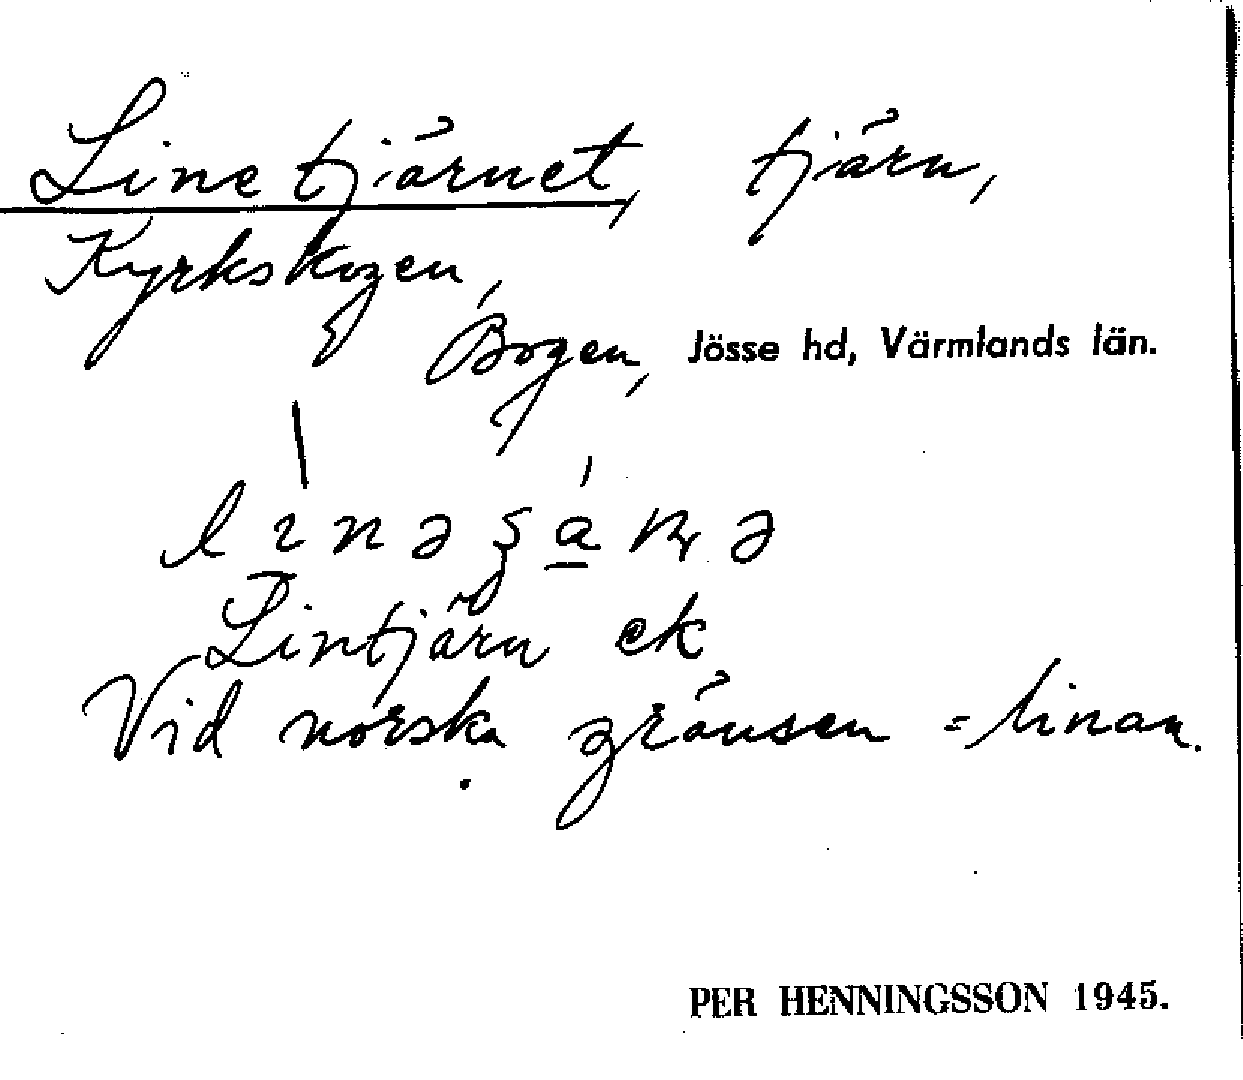 Linetjärnet, tjärn,
Kyrkskogen,
Bogen, Jössehd, Värmlands län.
Lintjärn ek
Vid norska gränsen = linan.
PER HENNINGSSON 1945.